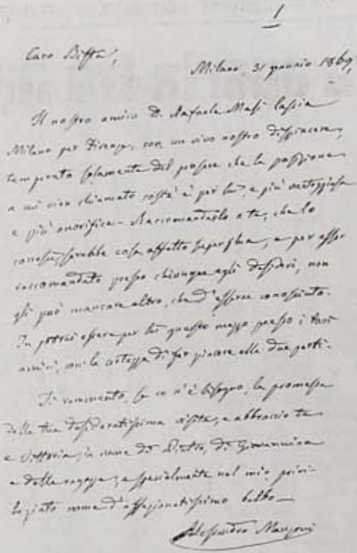 1
Caro Bista,
Milano, 31 gennaio 1869,
Il nostro amico D. Rafaele Masi lascia
Milano per Firenze, con un vivo nostro dispiacere,
temperato solamente dal pensare che la posizione
a cui vien chiamato costà è per lui e più vantaggiosa
e più onorifica. Raccomandarlo a te, che lo
conosci, sarebbe cosa affatto superflua, e per esser
raccomandato presso chiunque egli desideri, non
gli può mancare altro, che d'essere conosciuto.
Tu potrai essere per lui questo mezzo presso i tuoi
amici, con la certezza di far piacere alle due parti.
Ti rammento, se ce n'è bisogno, la promessa
della tua desideratissima visita, e abbraccio te
e Vittoria, in nome di Pietro, di Giovannina
e delle ragazze, e specialmente nel mio privi-
legiato nome d'affezionatissimo babbo
Alessandro Manzoni